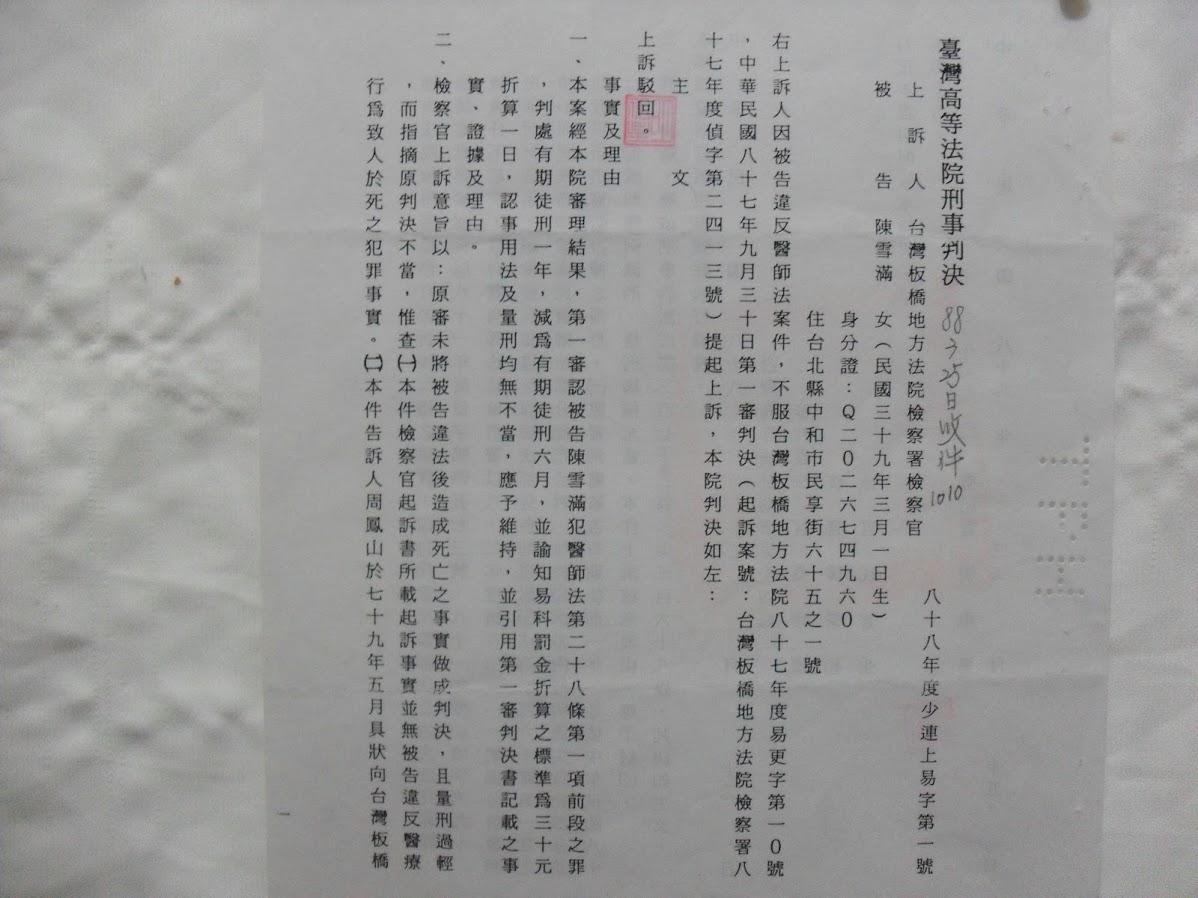 臺灣高等法院刑事判決
88 7 25日收件
1010
八十八年度少連上易字第一號
上訴人 台灣板橋地方法院檢察署檢察官
被告 陳雪滿 女(民國三十九年三月一日生)
身分證:Q二0二六七四九六0
住台北縣中和市民享街六十五之一號
右上訴人因被告違反醫師法案件,不服台灣板橋地方法院八十七年度易更字第一0號
,中華民國八十七年九月三十日第一審判決(起訴案號:台灣板橋地方法院檢察署八
十七年度偵字第二四一三號)提起上訴,本院判決如左:
主文
上訴駁回。
事實及理由
一、本案經本院審理結果,第一審認被告陳雪滿犯醫師法第二十八條第一項前段之罪
,判處有期徒刑一年,減爲有期徒刑六月,並諭知易科罰金折算之標準爲三十元
折算一日,認事用法及量刑均無不當,應予維持,並引用第一審判決書記載之事
實、證據及理由。
二、檢察官上訴意旨以:原審未將被告違法後造成死亡之事實做成判決,且量刑過輕
,而指摘原判決不當,惟查㈠本件檢察官起訴書所載起訴事實並無被告違反醫療
行爲致人於死之犯罪事實。㈡本件告訴人周鳳山於七十九年五月具狀向台灣板橋